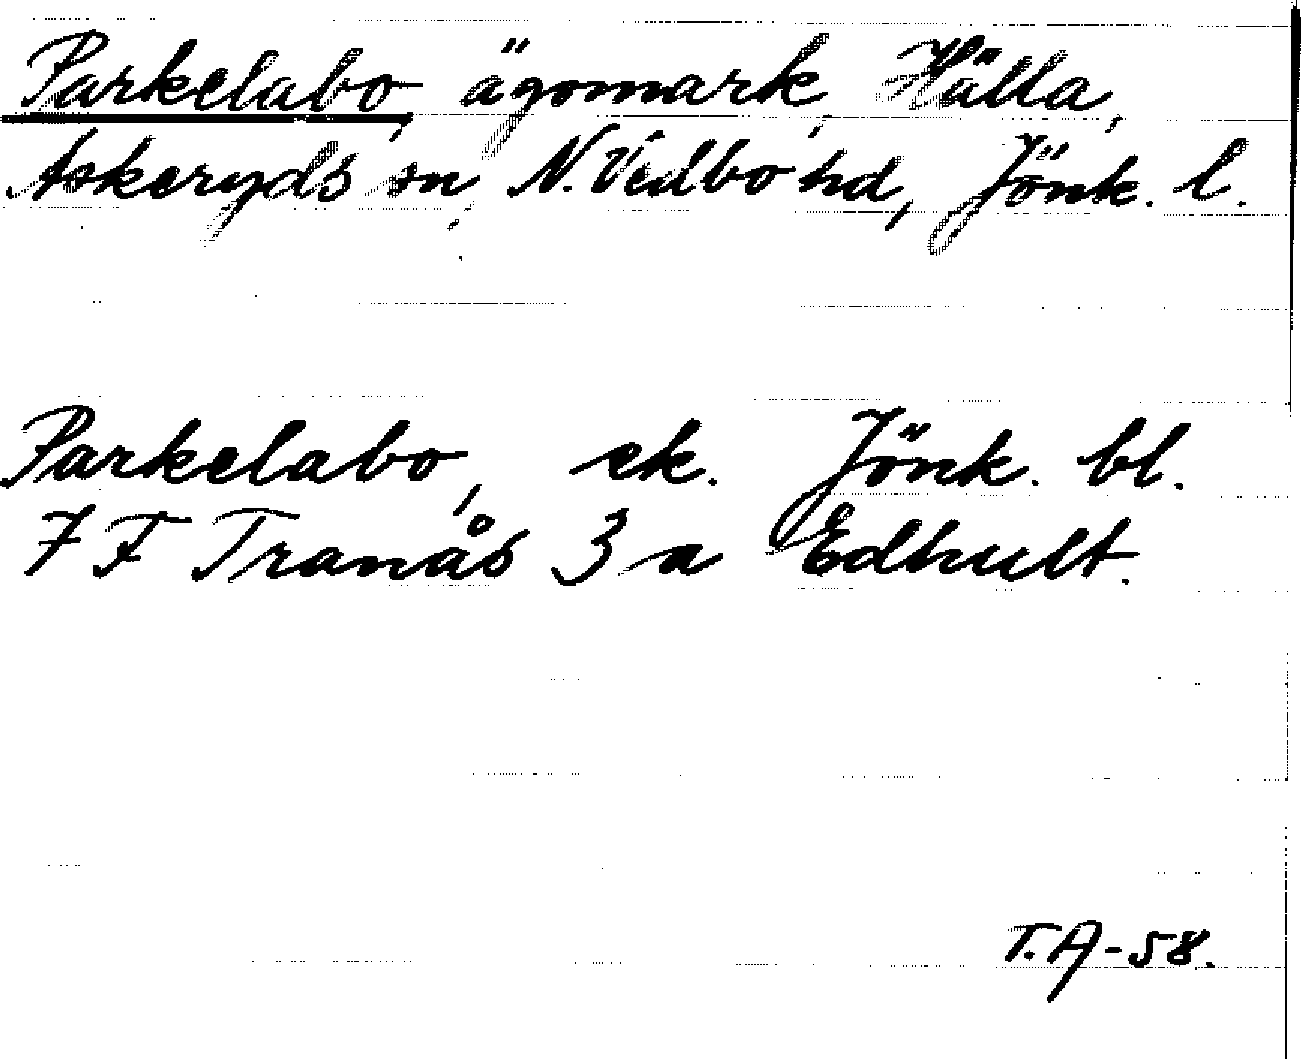 Parkelabo, ägomark, Hälla,
Askeryds sn, N. Vedbo hd, Jönk. l.
Parkelabo, ek. Jönk. bl.
7 F Tranås 3 a Edhult.
T.A-58.